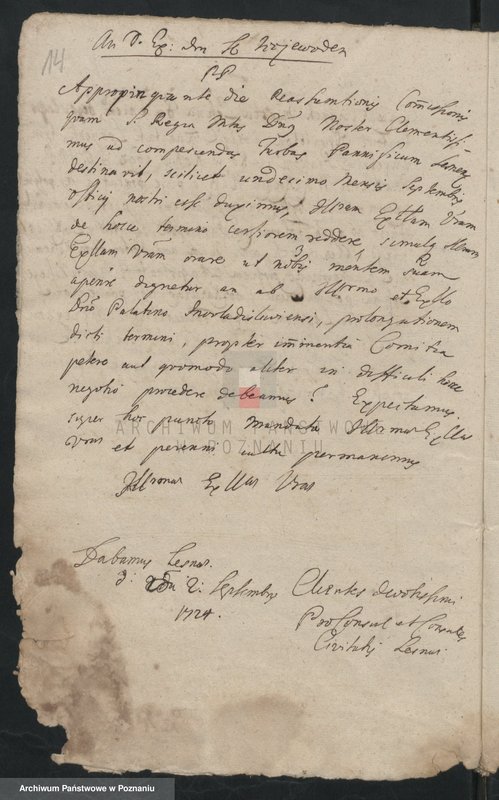 14
An S. Ex: den H Wojewoden
PP
Appropinquante die Reassumtionis Com̃issionis
quam S. Regia Mtas Dnũs Noster Clementissi-
mus ad compescendas Turbas Pannificum Lesnens
destinavit, scilicet undecimo Mensis Septembris
officij nostri esse duximus, Illrem Exllam Vram
de hocce termino certiorem reddere, simulq Illrem
Exllam Vram orare ut nobis mentem Suam
aperire dignetur an ab Illrmo et Exllo
Dnõ Palatino Inowladislaviensi, prolongationem
dicti termini, propter imminentia Comitia
petere aut quomodo aliter in difficili hocce
negotio procedere debeamus? Expectamus
super hoc puncto mandata Exllae
Vrae et perenni cultu permanemus
Exllae Vrae
Dabamus Lesnae
d. 2. Septembris
1724.
Clientes devotissimi
ProConsul et Consules
Civitatis Lesnae
ARCHIWUM PAŃSTWOWE
W POZNANIU
Archiwum Państwowe w Poznaniu